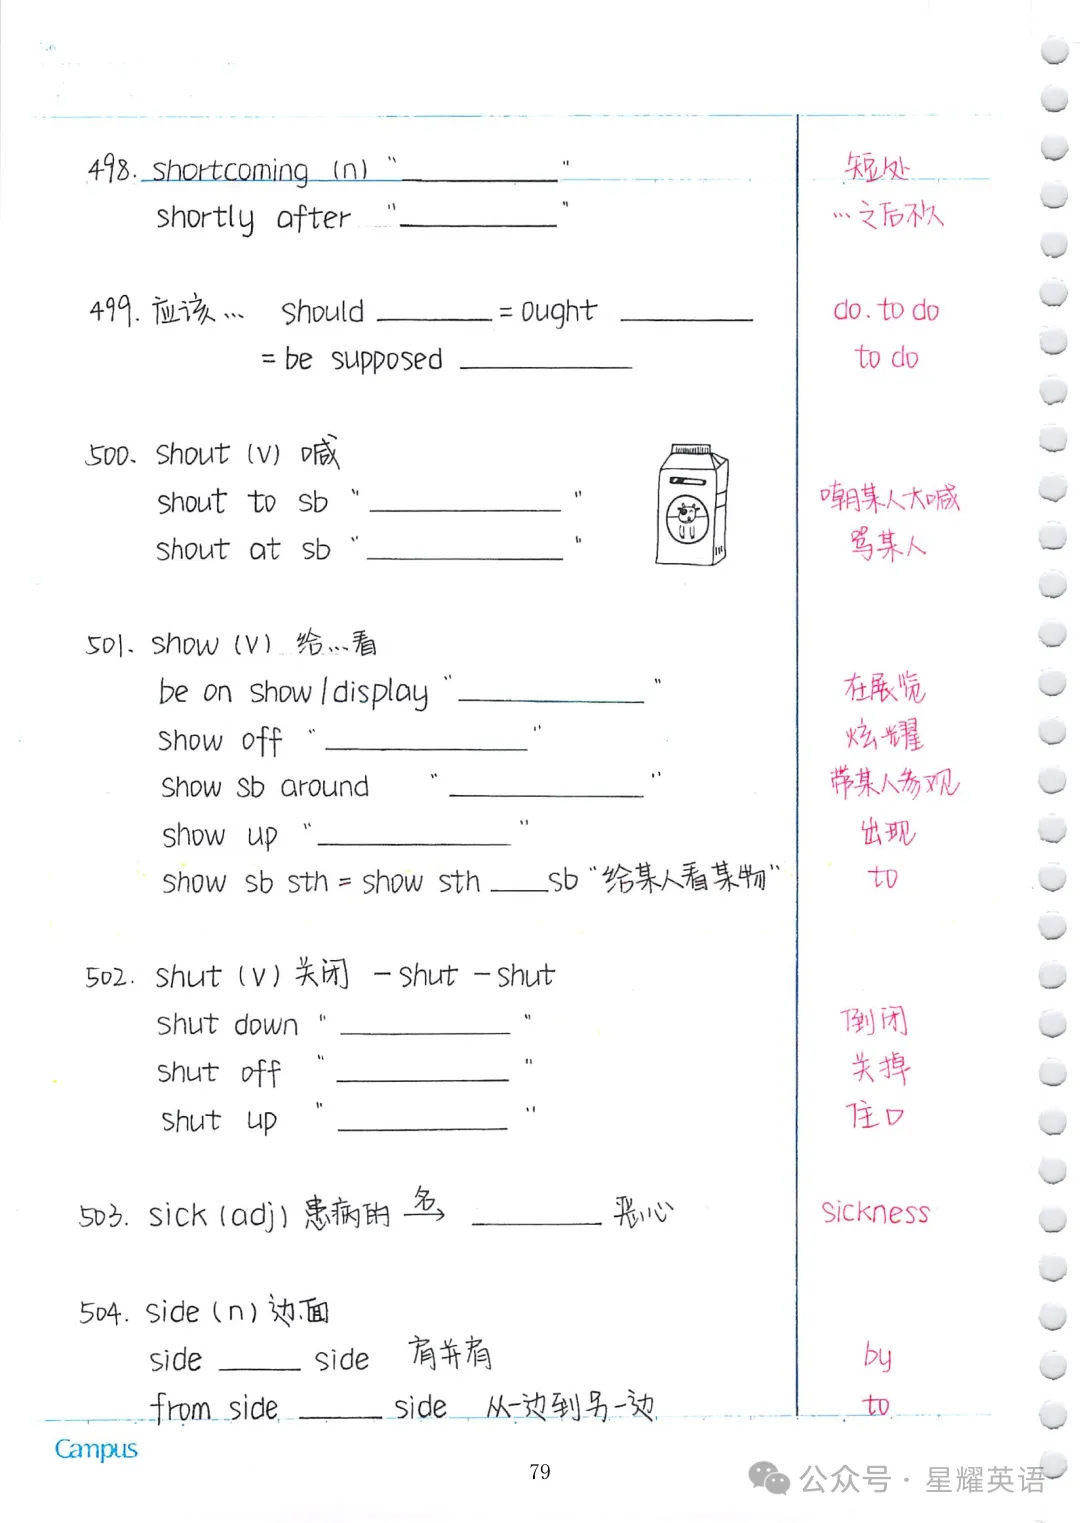 498. shortcoming (n) "__________" 短处
shortly after "__________" …之后不久
499. 应该… should ________ = ought ________ do. to do
= be supposed __________ to do
500. shout (v) 喊
shout to sb "__________" 嘲某人大喊
shout at sb "__________" 骂某人
501. show (v) 给…看
be on show/display "__________" 在展览
show off "__________" 炫耀
show sb around "__________" 带某人参观
show up "__________" 出现
show sb sth = show sth ____ sb "给某人看某物" to
502. shut (v) 关闭 - shut - shut
shut down "__________" 倒闭
shut off "__________" 关掉
shut up "__________" 住口
503. sick (adj) 患病的 名→ ________ 恶心 sickness
504. side (n) 边、面
side _____ side 肩并肩 by
from side _____ side 从一边到另一边 to
Campus
79
公众号 · 星耀英语